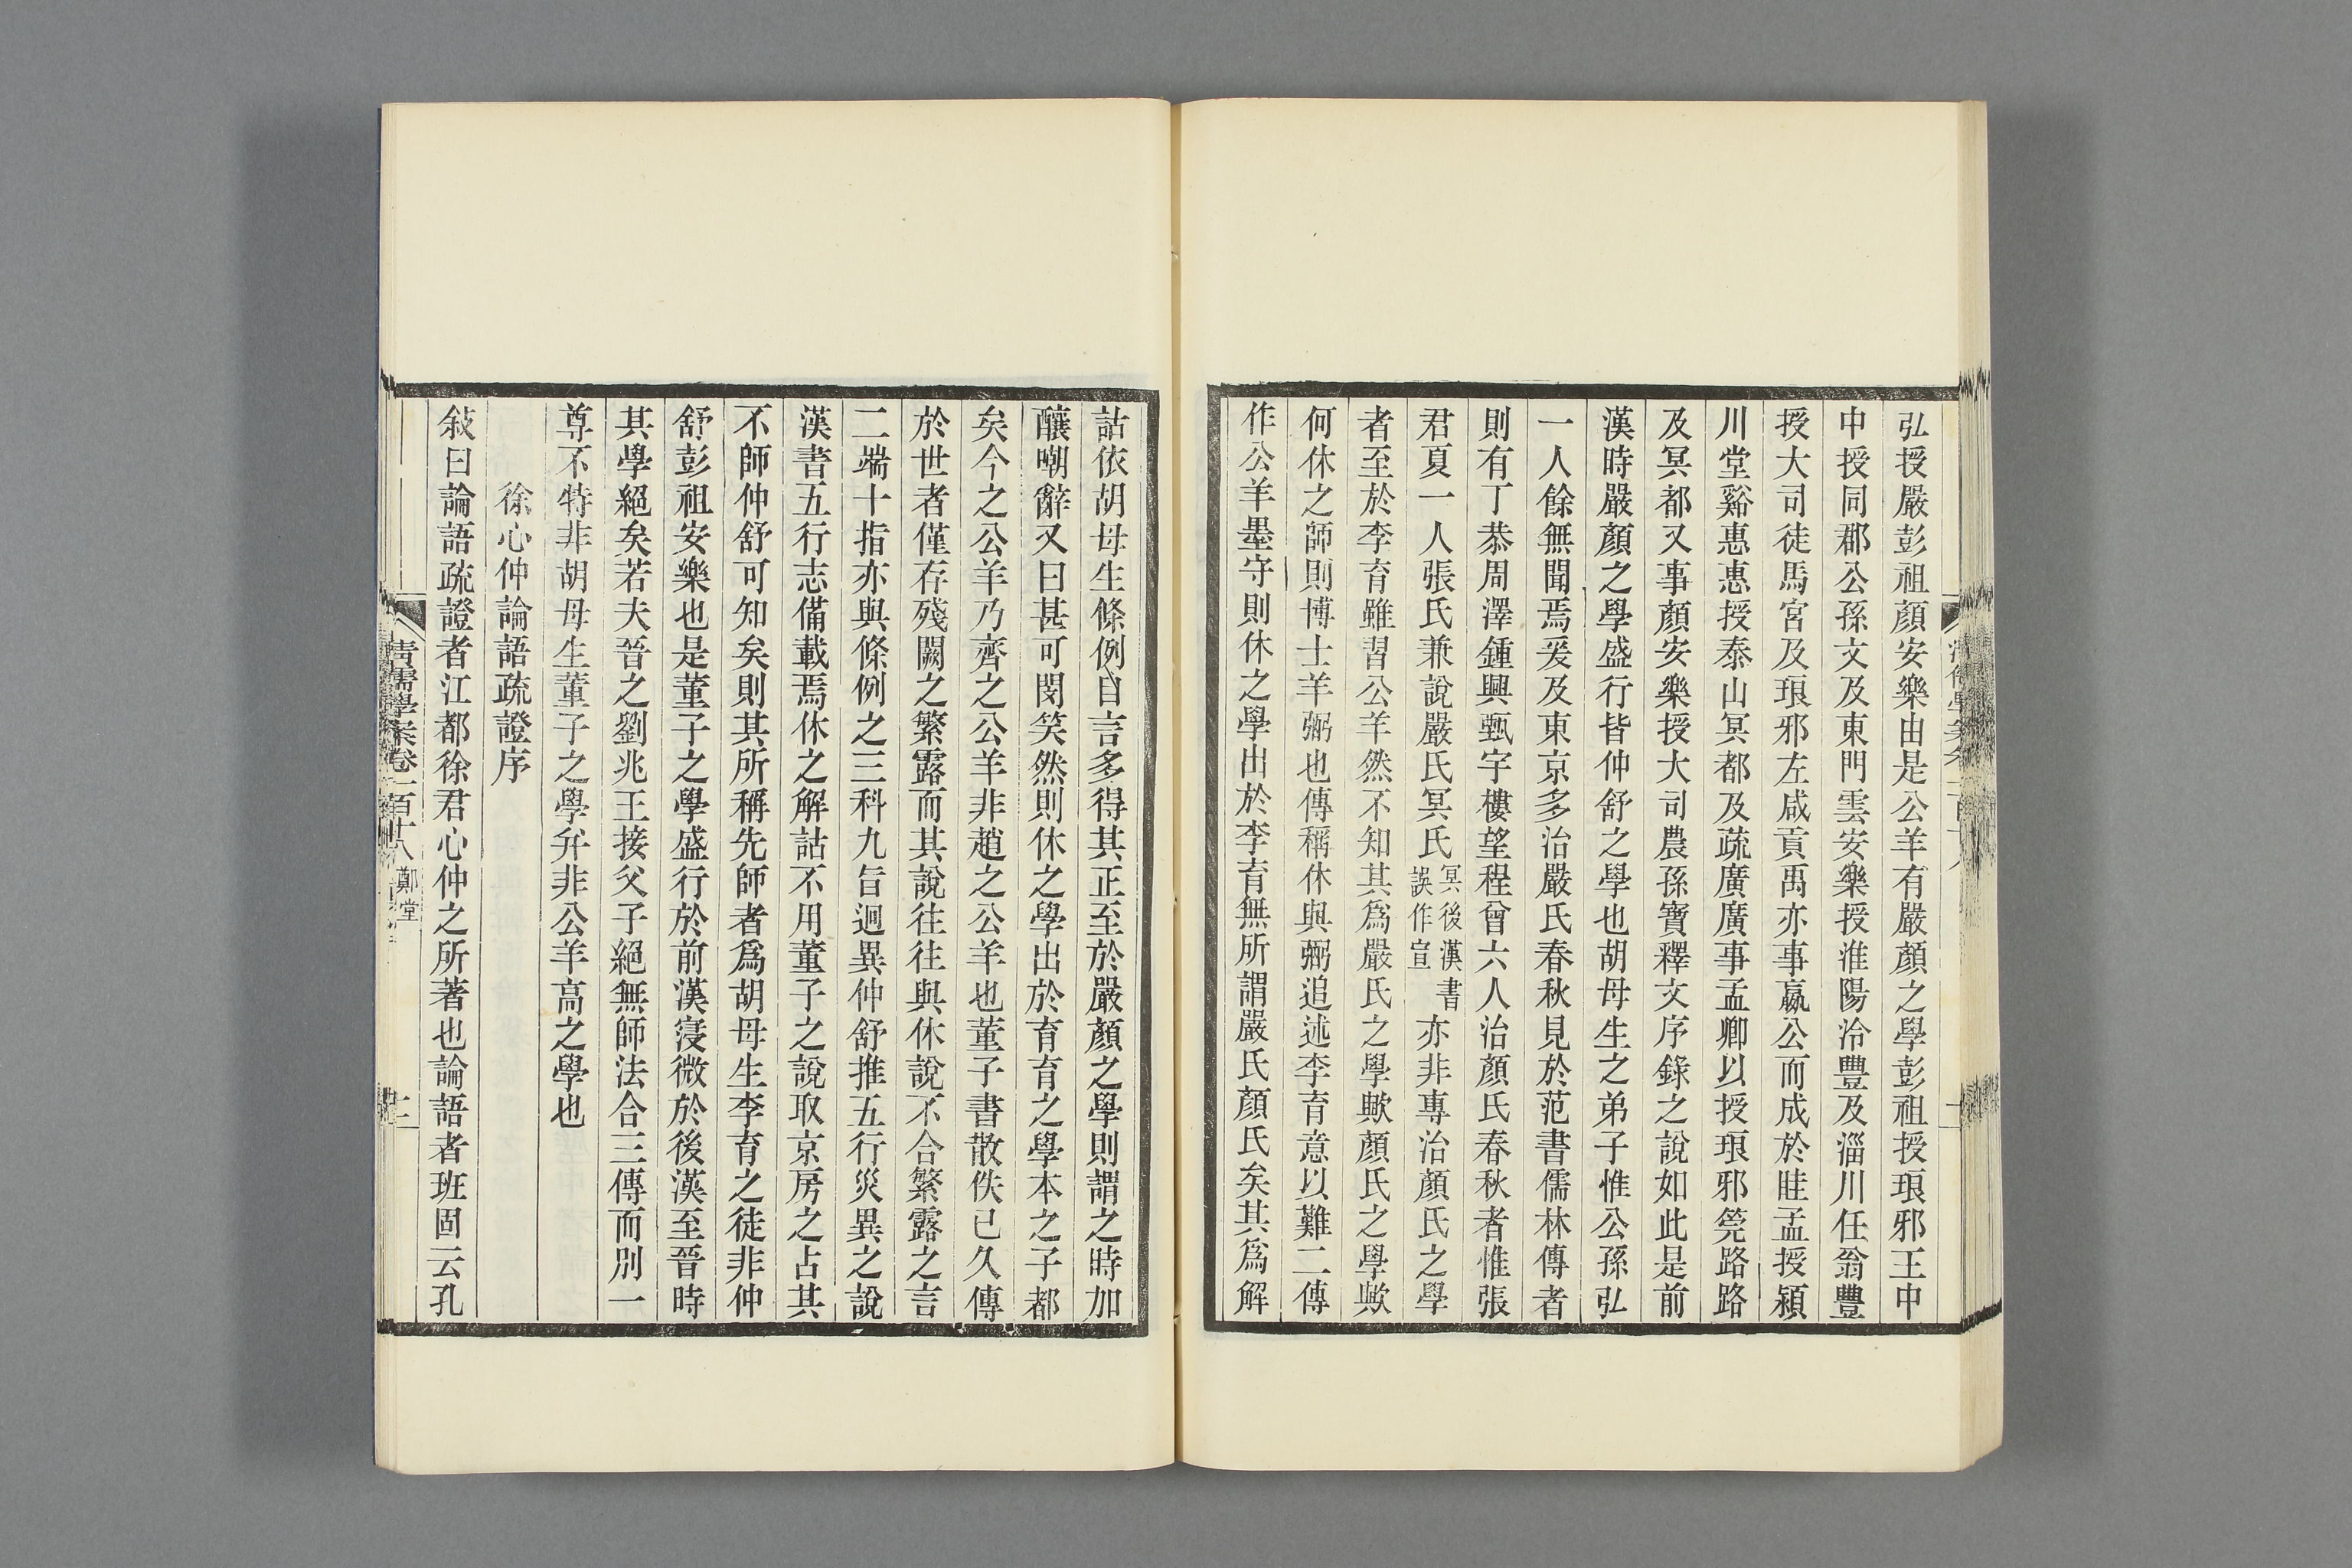 弘授嚴彭祖顏安樂由是公羊有嚴顏之學彭祖授琅邪王中
中授同郡公孫文及東門雲安樂授淮陽泠豐及淄川任翁豐
授大司徒馬宮及琅邪左咸貢禹亦事嬴公而成於眭孟授潁
川堂谿惠惠授泰山冥都及疏廣廣事孟卿以授琅邪筦路路
及冥都又事顏安樂授大司農孫寶釋文序錄之說如此是前
漢時嚴顏之學盛行皆仲舒之學也胡母生之弟子惟公孫弘
一人餘無聞焉爰及東京多治嚴氏春秋見於范書儒林傳者
則有丁恭周澤鍾興甄宇樓望程曾六人治顏氏春秋者惟張
君夏一人張氏兼說嚴氏冥氏冥後漢書誤作宣亦非專治顏氏之學
者至於李育雖習公羊然不知其爲嚴氏之學歟顏氏之學歟
何休之師則博士羊弼也傳稱休與弼追述李育意以難二傳
作公羊墨守則休之學出於李育無所謂嚴氏顏氏矣其爲解
詁依胡母生條例自言多得其正至於嚴顏之學則謂之時加
釀嘲辭又曰甚可閔笑然則休之學出於育育之學本之子都
矣今之公羊乃齊之公羊非趙之公羊也董子書散佚已久傳
於世者僅存殘闕之繁露而其說往往與休說不合繁露之言
二端十指亦與條例之三科九旨迥異仲舒推五行災異之說
漢書五行志備載焉休之解詁不用董子之說取京房之占其
不師仲舒可知矣則其所稱先師者爲胡母生李育之徒非仲
舒彭祖安樂也是董子之學盛行於前漢寖微於後漢至晉時
其學絕矣若夫晉之劉兆王接父子絕無師法合三傳而別一
尊不特非胡母生董子之學弁非公羊高之學也
徐心仲論語疏證序
敍曰論語疏證者江都徐君心仲之所著也論語者班固云孔
清儒學案卷一百十八 鄭堂
二